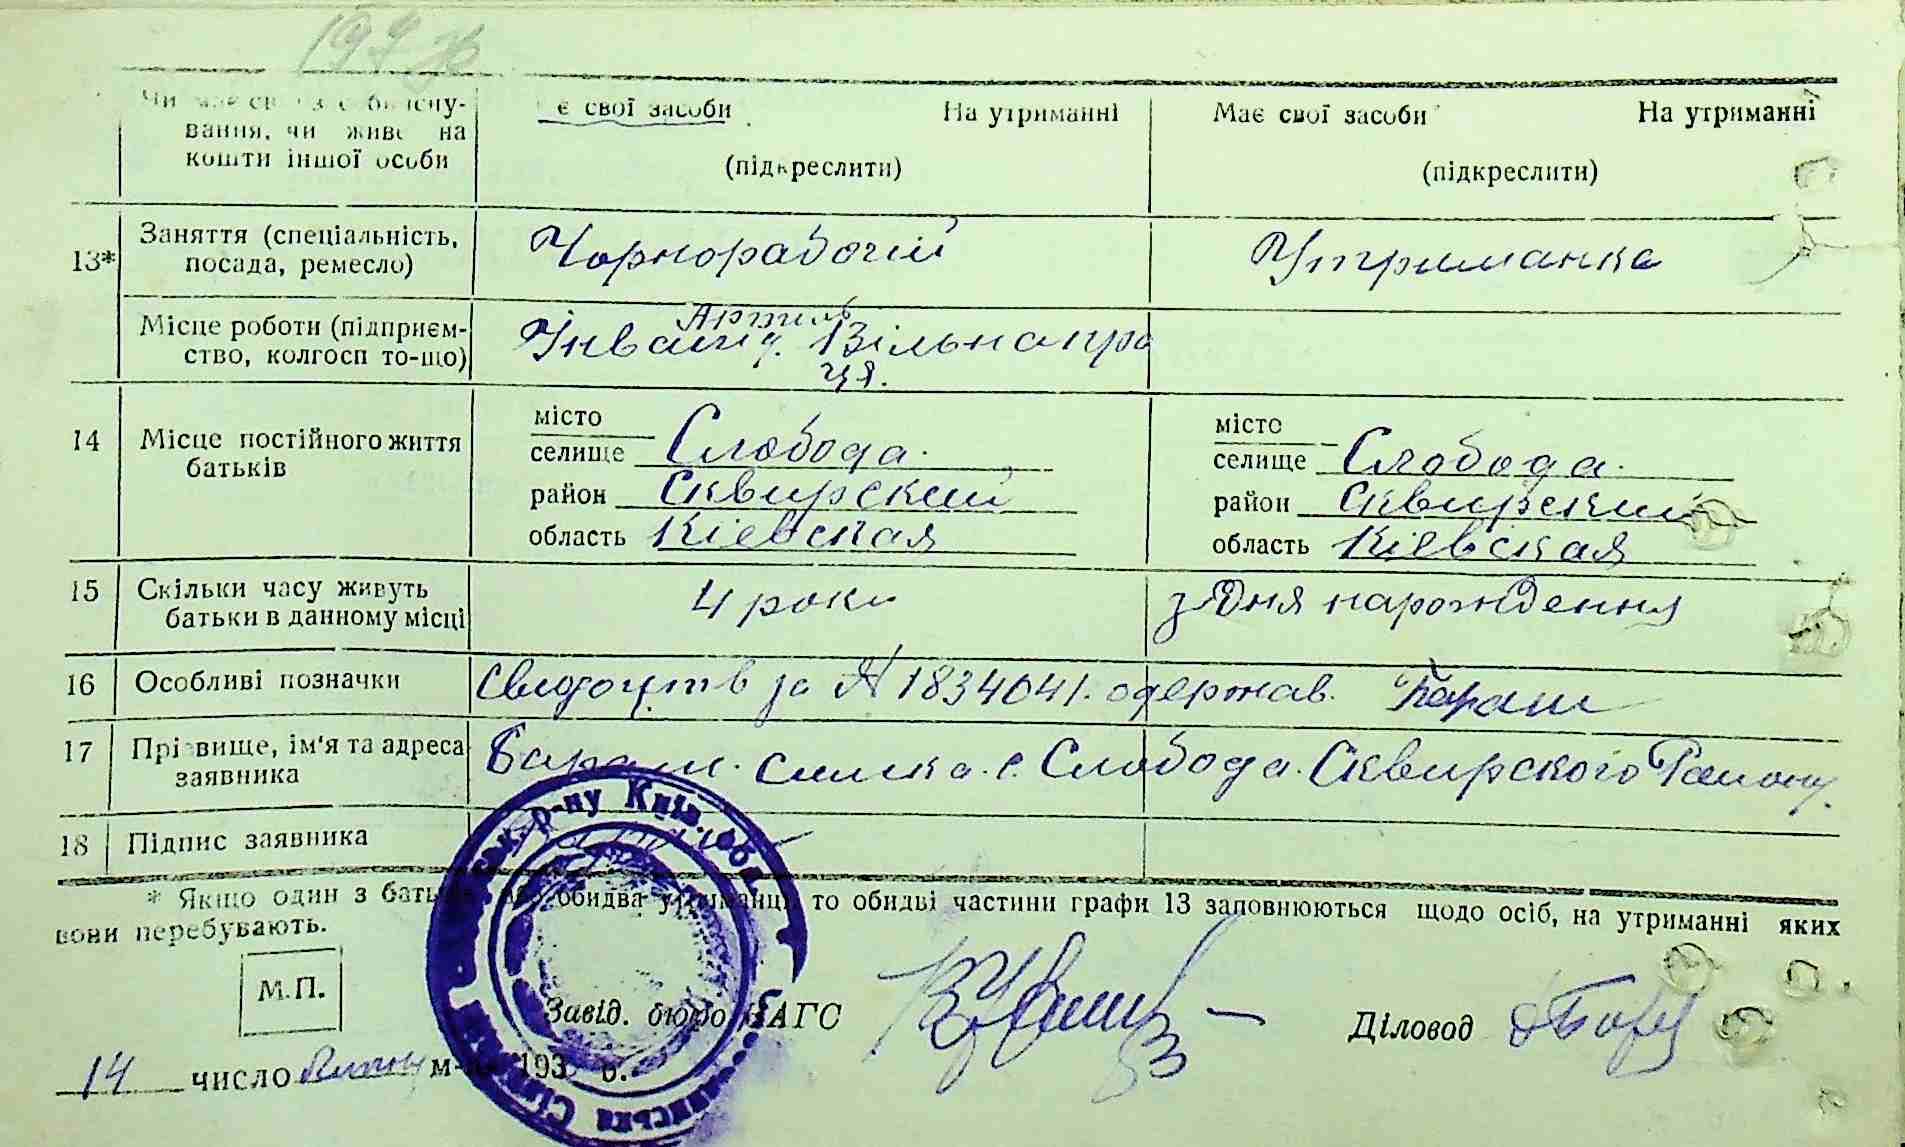 197
Чи має свої з с б існу- є свої засоби На утриманні Має свої засоби На утриманні
вання, чи живе на
кошти іншої особи (підкреслити) (підкреслити)
13* Заняття (спеціальність, посада, ремесло) Чорнорабочий Утриманка
Місце роботи (підприєм- Артиль
ство, колгосп то-що) Інвалід. Вільна пра
ця.
14 Місце постійного життя батьків
місто місто
селище Слобода. селище Слобода.
район Сквирский район Сквирский
область Кіевская область Кіевская
15 Скільки часу живуть 4 роки з Дня нарождення
батьки в данному місці
16 Особливі позначки Свидоцтв за № 1834641. одержав. Бараш
17 Прізвище, ім'я та адреса Бараш. с. Слобода. Сквирского Району.
заявника
18 Підпис заявника
* Якщо один з бать обидва утриманці то обидві частини графи 13 заповнюються щодо осіб, на утриманні яких
вони перебувають.
М.П.
Завід. бюро ЗАГС Діловод
14 число м- 193 р.
р-ну Київ. обл.